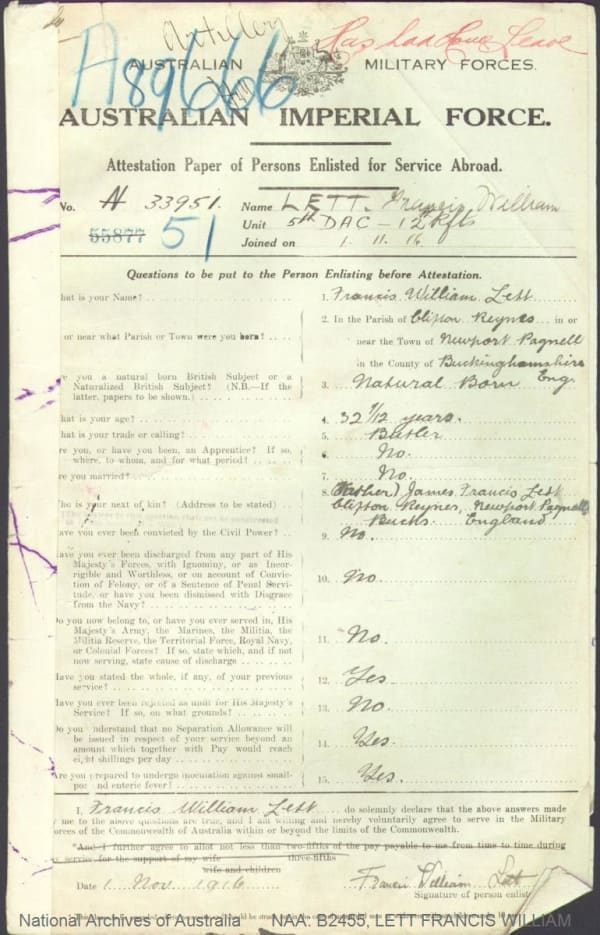 Artillery
Has had Home Leave
A89666
AUSTRALIAN MILITARY FORCES.
AUSTRALIAN IMPERIAL FORCE.
Attestation Paper of Persons Enlisted for Service Abroad.
No. N 33951. Name LETT. Francis William
55877 51 Unit 5th DAC - 12th Rfts
Joined on 1. 11. 16.
Questions to be put to the Person Enlisting before Attestation.
hat is your Name? 1. Francis William Lett
2. In the Parish of Clifton Reynes in or
or near what Parish or Town were you born? near the Town of Newport Pagnell
in the County of Buckinghamshire
e you a natural born British Subject or a
Naturalized British Subject? (N.B.—If the 3. Natural Born Eng.
latter, papers to be shown.)
hat is your age? 4. 32 1/12 years.
hat is your trade or calling? 5. Butler
re you, or have you been, an Apprentice? If so,
where, to whom, and for what period? 6. No.
re you married? 7. No.
8. (Father) James Francis Lett
ho is your next of kin? (Address to be stated) Clifton Reynes, Newport Pagnell
Bucks. England
ave you ever been convicted by the Civil Power? 9. No.
ave you ever been discharged from any part of His
Majesty's Forces, with Ignominy, or as Incor-
rigible and Worthless, or on account of Convic-
tion of Felony, or of a Sentence of Penal Servi- 10. No.
tude, or have you been dismissed with Disgrace
from the Navy?
Do you now belong to, or have you ever served in, His
Majesty's Army, the Marines, the Militia, the
Militia Reserve, the Territorial Force, Royal Navy,
or Colonial Forces? If so, state which, and if not 11. No.
now serving, state cause of discharge
Have you stated the whole, if any, of your previous
service? 12. Yes
Have you ever been rejected as unfit for His Majesty's
Service? If so, on what grounds? 13. No.
Do you understand that no Separation Allowance
will be issued in respect of your service beyond an
amount which together with Pay would reach 14. Yes.
eight shillings per day
Are you prepared to undergo inoculation against small-
pox and enteric fever? 15. Yes.
I, Francis William Lett do solemnly declare that the above answers made
me to the above questions are true, and I am willing and hereby voluntarily agree to serve in the Military
orces of the Commonwealth of Australia within or beyond the limits of the Commonwealth.
*And I further agree to allot not less than two-fifths of the pay payable to me from time to time during
three-fifths
service for the support of my wife
wife and children
Date 1 Nov. 1916 Francis William Lett
Signature of person enlisted
National Archives of Australia NAA: B2455, LETT FRANCIS WILLIAM